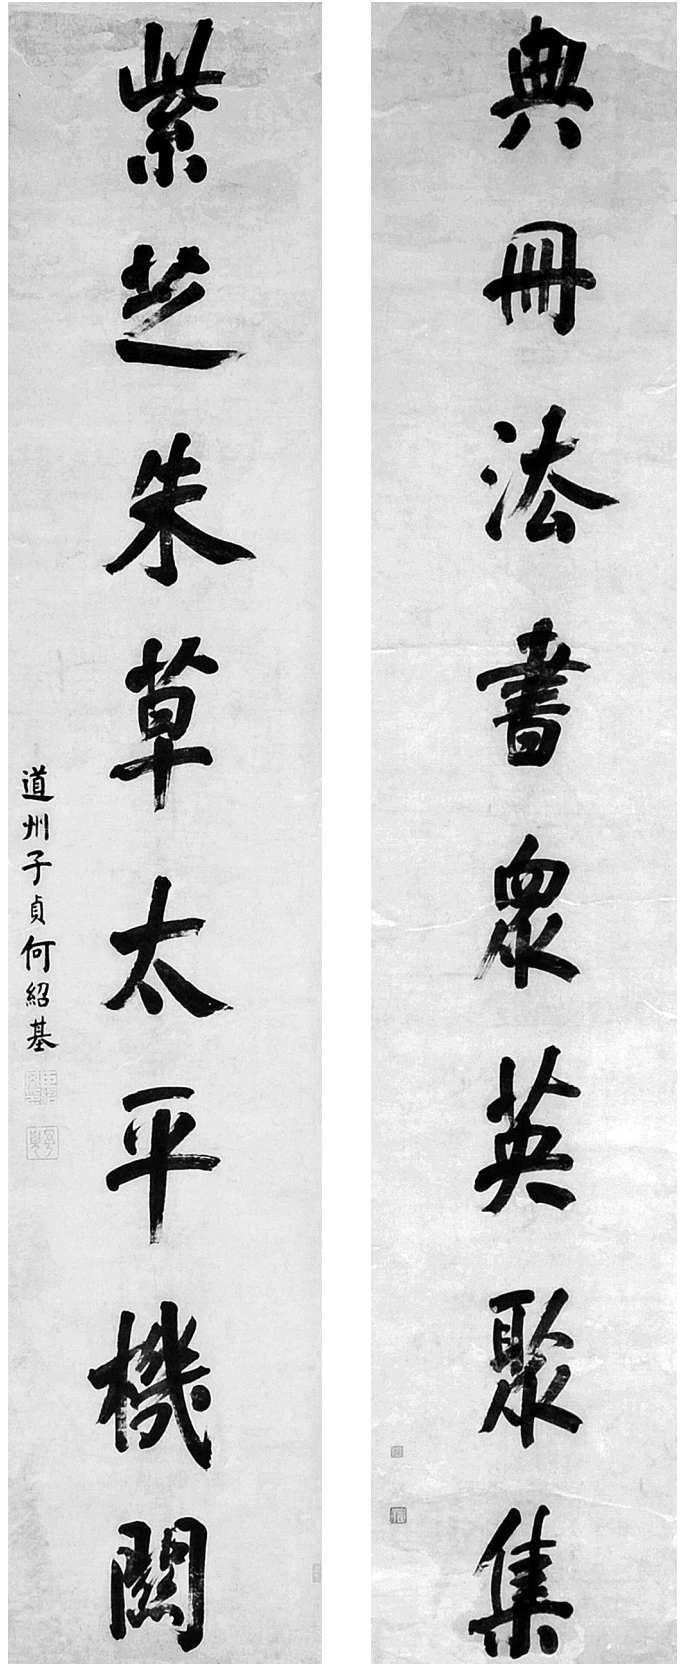 典冊法書眾英聚集
紫芝朱草太平機關
道州子貞何紹基